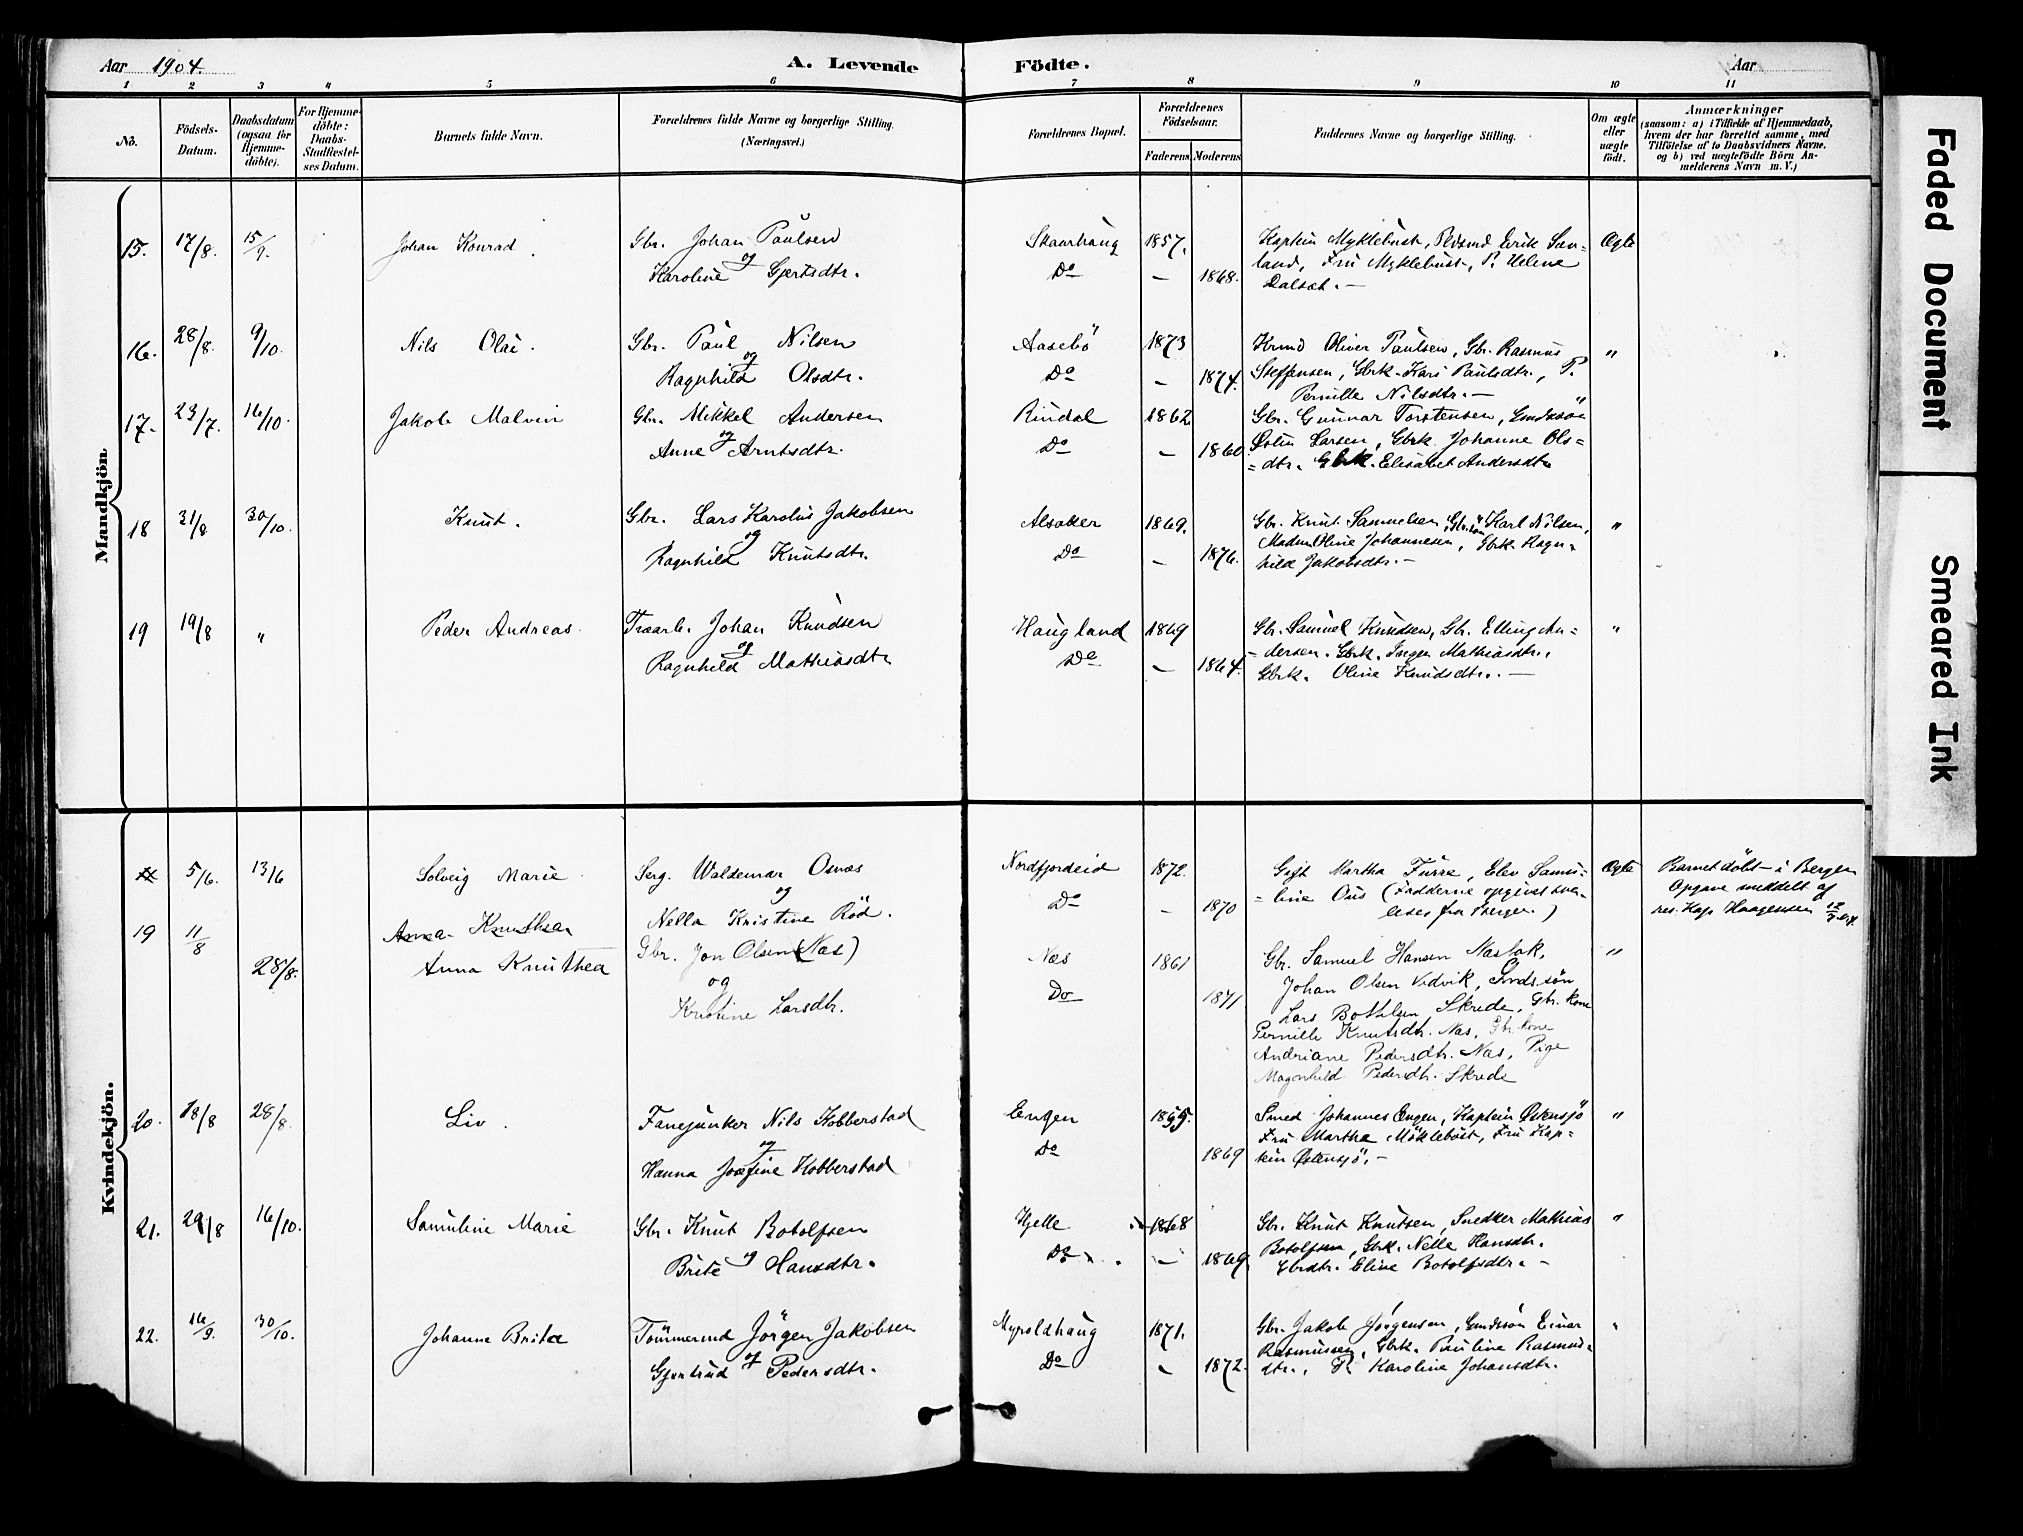 Aar 1904. A. Levende Födte. Aar
1 2 3 4 5 6 7 8 9 10 11
No. Födsels-Datum. Daabsdatum (ogsaa for Hjemme-döbte). For Hjemme-döbte: Daabs-Stadfæstel-ses Datum. Barnets fulde Navn. Forældrenes fulde Navne og borgerlige Stilling. (Næringsvei.) Forældrenes Bopæl. Forældrenes Födselsaar. Faderens Moderens Faddernes Navne og borgerlige Stilling. Om ægte eller uægte födt. Anmærkninger (saasom: a) i Tilfælde af Hjemmedaab, hvem der har forrettet samme, med Tilföielse af to Daabsvidners Navne. og b) ved uægtefödte Börn An-melderens Navn m. V.)
Mandkjön.
15. 17/8. 15/9. Johan Konrad. Gbr. Johan Paulsen Skaarhaug 1857. Kaptein Myklebust, Erik San= Ægte
og
Karoline Gjertsdtr. Do — 1868. land, Fru Myklebust, P. Helene
Dalsæt. —
16. 28/8. 9/10. Nils Olai. Gbr. Paul Nilsen Aasebö 1873 Kmd Oliver Paulsen, Gbr. Rasmus "
og
Ragnhild Olsdtr. Do — 1874. Steffensen, Gbrk. Kari Paulsdtr., P.
Pernille Nilsdtr. —
17. 23/7. 16/10. Jakob Malvin Gbr. Mikkel Andersen Rindal 1862 Gbr. Gunnar Torstensen, Gmdssön
og
Anne Arntsdtr. Do — 1860. Larsen, Gbrk. Johanne Ols=
=dtr. Gbrk. Elisabet Andersdtr
18 31/8 30/10. Knut. Gbr. Lars Karolus Jakobsen Alsaker 1869. Gbr. Knut Samuelsen, Gbr.sön Karl Nilsen, "
og
Ragnhild Knutsdtr. Do — 1876. Madam Oline Johannesen, Gbrk. Ragn-
hild Jakobsdtr. —
19 19/8 " Peder Andreas. Træarb. Johan Knudsen Haugland 1869 Gbr. Samuel Knudsen, Gbr. Elling An= "
og
Ragnhild Mathiasdtr Do — 1864. =dersen. Gbrk. Inger Mathiasdtr.
Gbrk. Oline Knudsdtr. —
Kvindekjön.
5/6. 13/6 Solveig Marie Serg. Waldemar Osnæs Nordfjordeid 1872. Gift Martha Furre, Elev Samu= Ægte Barnet döbt i Bergen
og
Nella Kristine Röd. Do — 1870 =line Ous (Fadderne opgivet saa= Opgave meddelt af
ledes fra Bergen.) res. Kap. Haagensen
19 11/8 Anna Knuthea
28/8. Anna Knuthea Gbr. Jon Olsen (Næs) Næs 1861 Gbr. Samuel Hansen Næsbak, "
og
Kristine Larsdtr. Do 1871 Johan Olsen Vedvik, Gmdssön
Lars Bottelsen Skrede, Gbr. kone
Pernille Knutsdtr. Næs, Gbr. kone
Andriane Pedersdtr. Næs, Pige
Magnhild Pedersdtr. Skrede
20. 18/8 28/8. Liv. Fanejunker Nils Kobberstad Engen 1855. Smed Johannes Engen, Kaptein Østensjö "
og
Hanna Josefine Kobberstad Do 1869 Fru Martha Möklebust, Fru Kap=
tein Østensjö. —
21. 29/8 16/10. Samuline Marie Gbr. Knut Botolfsen Hjelle 1868 Gbr. Knut Knutsen, Snedker Mathias "
og
Brite Hansdtr. Do — 1869. Botolfsen, Gbrk. Nelle Hansdtr.
Gbrdtr. Eline Botolfsdtr. —
22. 16/9. 30/10. Johanne Brita Tömmermd Jörgen Jakobsen Myroldhaug 1871. Gbr. Jakob Jørgensen, Gmdssön Einar "
og
Gjertrud Pedersdtr. Do — 1872. Rasmussen, Gbrk. Pauline Rasmus-
dtr., P. Karoline Johansdtr.
Faded Document
Smeared Ink